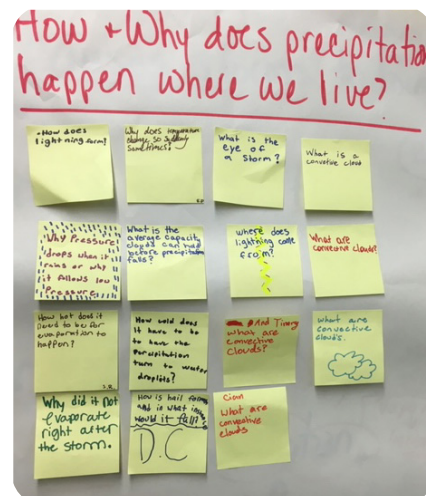 How + Why does precipitation
happen where we live?
How does
lightning form?
Why does temperature
change so suddenly
sometimes?
What is the
eye of
a storm?
What is a
convective cloud
Why Pressure
drops when it
rains or why
it follows low
Pressure
What is the
average capacity
clouds can hold
before precipitation
falls?
where does
lightning come
from?
What are
convective clouds?
How hot does it
need to be for
evaporation to
happen?
S.R.
How cold does
it have to be
to have the
percipitation
turn to water
droplets?
And Timmy
what are
convective
clouds?
what are
convective
clouds.
Why did it not
evaporate
right after
the storm.
How is hail
and in what
would it fall?
D.C
Cian
what are
convective
clouds